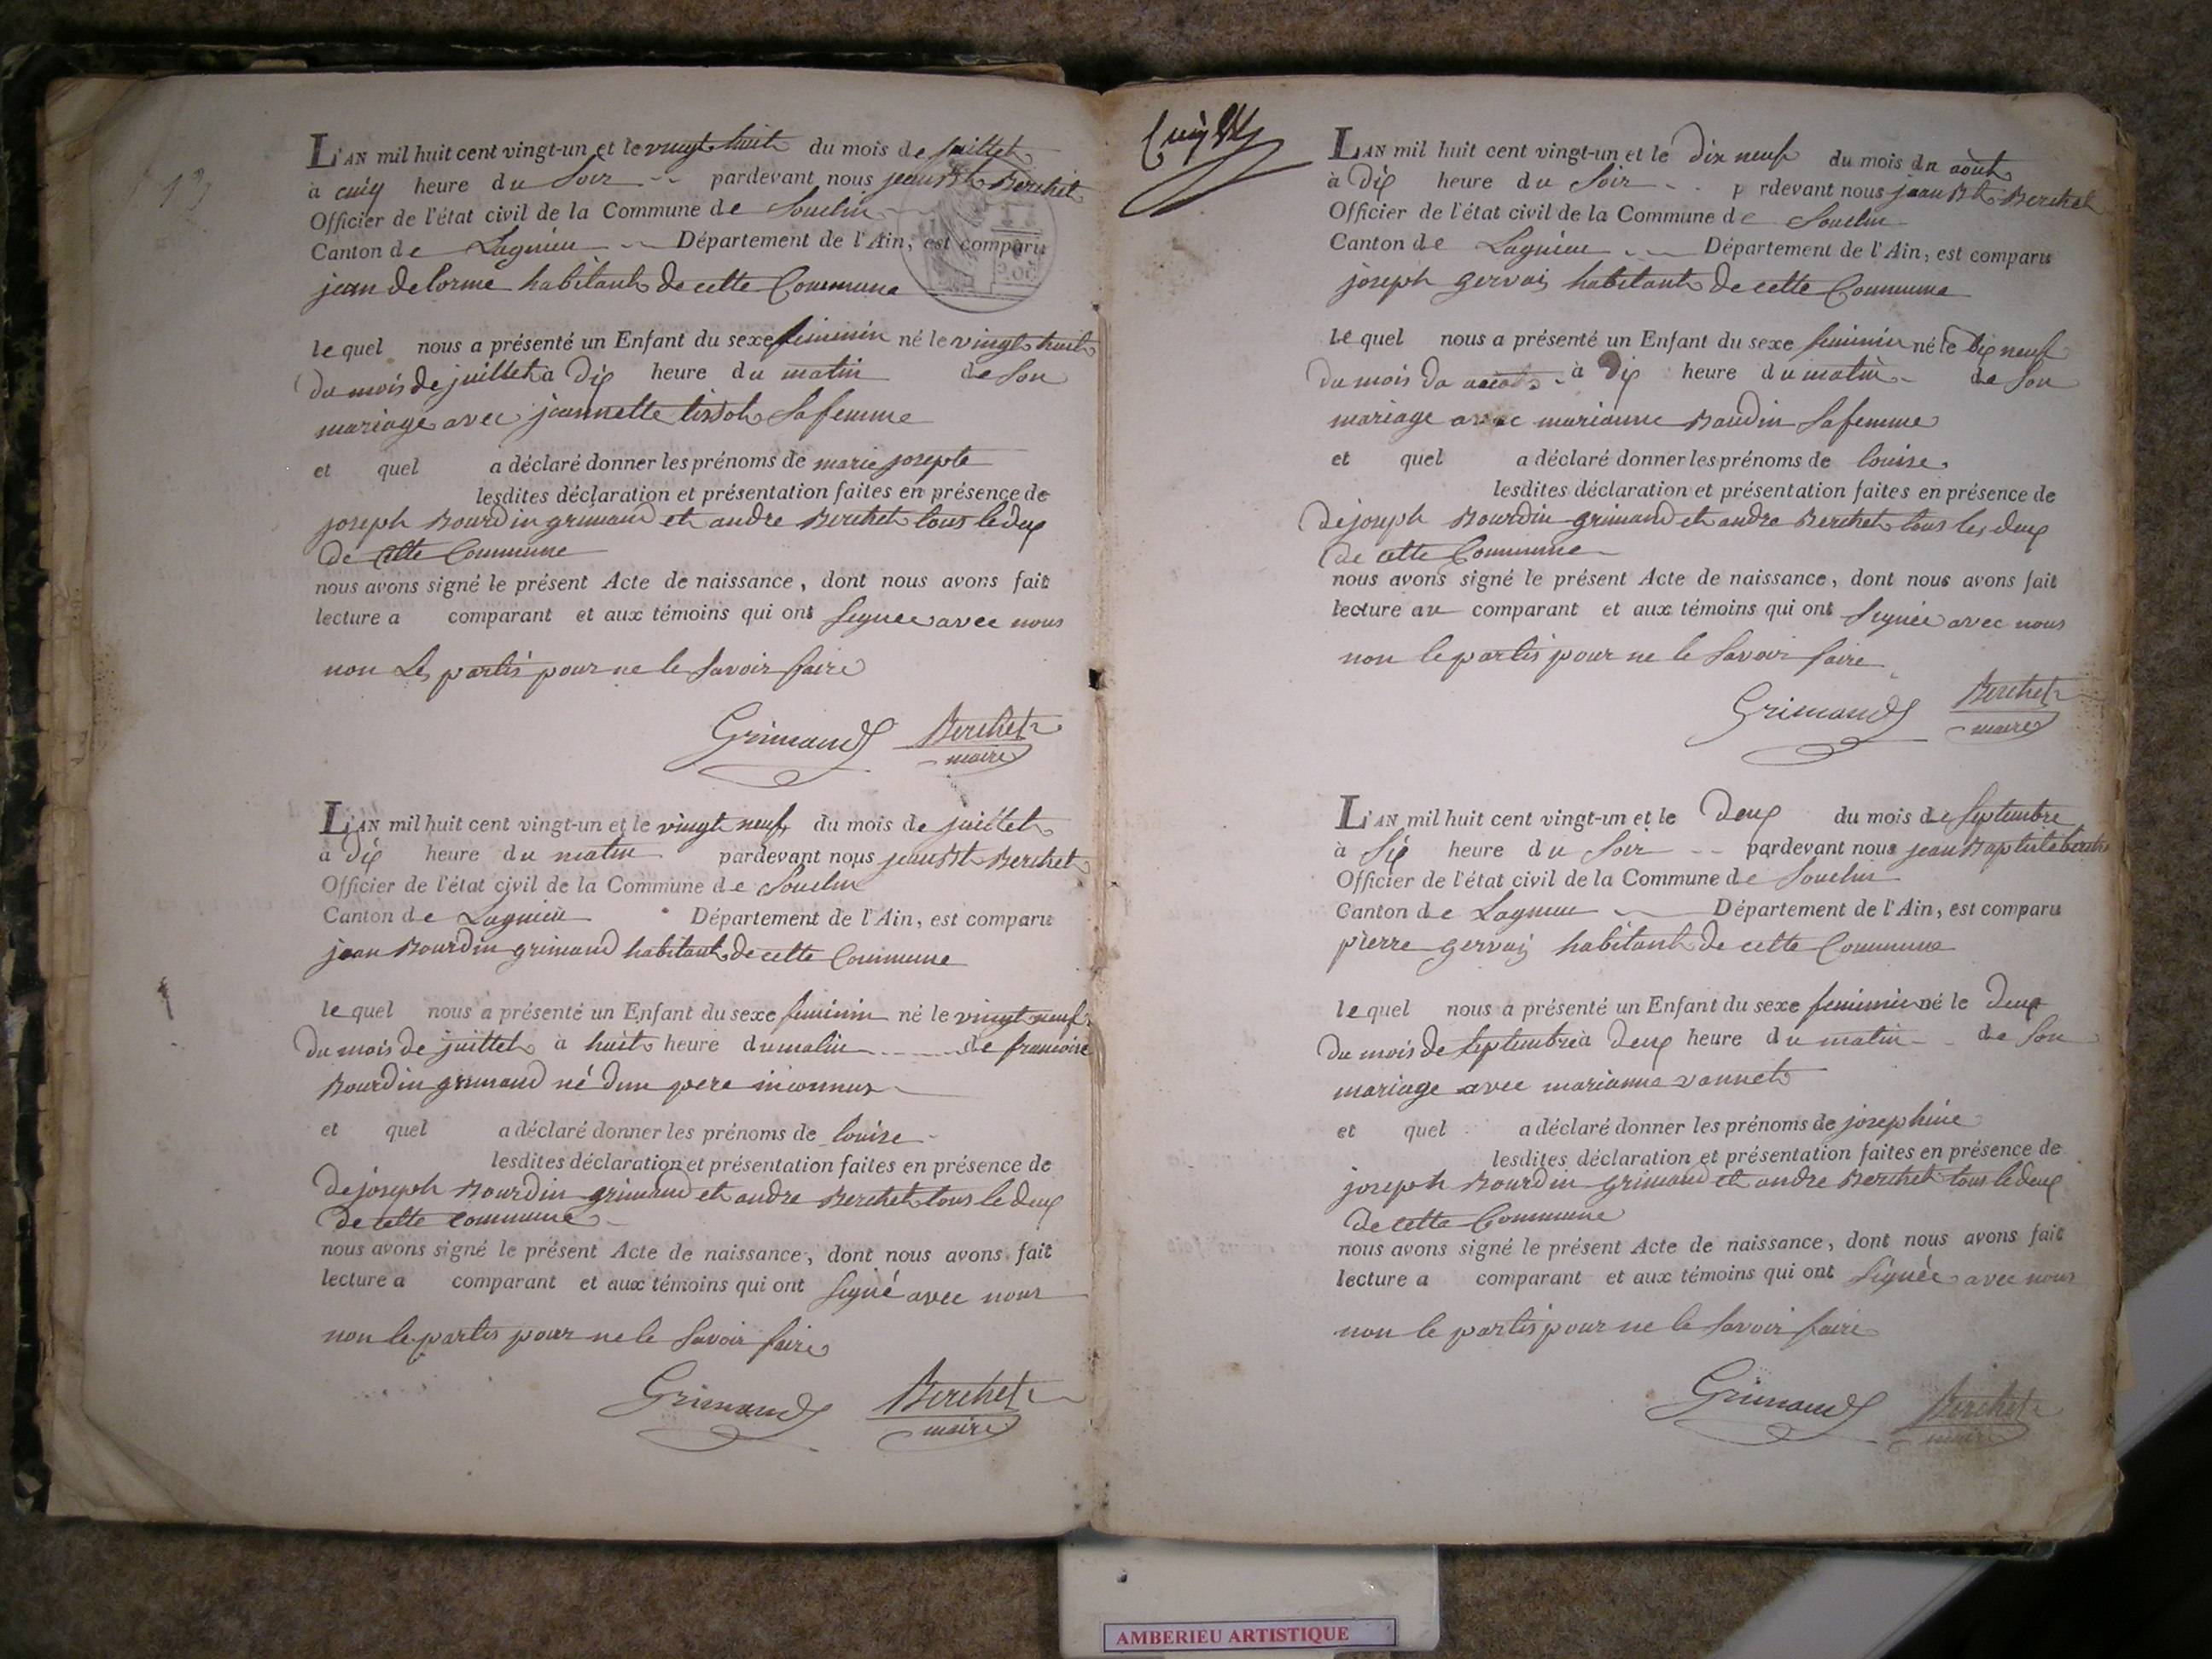 L'AN mil huit cent vingt-un et le vingt huit du mois de juillet
à cinq heure du soir pardevant nous jean Bt Berchet
Officier de l'état civil de la Commune de Souclin
Canton de Lagnieu Département de l'Ain, est comparu
jean delorme habitant de cette Commune
lequel nous a présenté un Enfant du sexe feminin né le vingt huit
du mois de juillet à dix heure du matin de son
mariage avec jeannette tissot sa femme
et quel a déclaré donner les prénoms de marie josepte
lesdites déclaration et présentation faites en présence de
joseph Bourdin grimaud et andre Berchet tous le deux
de cette Commune
nous avons signé le présent Acte de naissance, dont nous avons fait
lecture a comparant et aux témoins qui ont signée avec nous
non les partis pour ne le savoir faire
Grimaud Berchet
maire
L'AN mil huit cent vingt-un et le vingt neuf du mois de juillet
à dix heure du matin pardevant nous jean Bt Berchet
Officier de l'état civil de la Commune de Souclin
Canton de Lagnieu Département de l'Ain, est comparu
jean Bourdin grimaud habitant de cette Commune
lequel nous a présenté un Enfant du sexe feminin né le vingt neuf
du mois de juillet à huit heure du matin de francoise
Bourdin grimaud né dun pere inconnus
et quel a déclaré donner les prénoms de louise
lesdites déclaration et présentation faites en présence de
de joseph Bourdin grimaud et andre Berchet tous le deux
de cette commune
nous avons signé le présent Acte de naissance, dont nous avons fait
lecture a comparant et aux témoins qui ont signé avec nous
non le partis pour ne le savoir faire
Grimaud Berchet
maire
L'AN mil huit cent vingt-un et le dix neuf du mois da août
à dix heure du soir p rdevant nous jean Bt Berchet
Officier de l'état civil de la Commune de Souclin
Canton de Lagnieu Département de l'Ain, est comparu
joseph gervais habitant de cette Commune
lequel nous a présenté un Enfant du sexe feminin né le dix neuf
du mois da août à dix heure du matin de son
mariage avec marianne Baudin sa femme
et quel a déclaré donner les prénoms de louise
lesdites déclaration et présentation faites en présence de
de joseph Bourdin grimaud et andre Berchet tous les deux
de cette Commune
nous avons signé le présent Acte de naissance, dont nous avons fait
lecture au comparant et aux témoins qui ont signée avec nous
non le partis pour ne le savoir faire
Grimaud Berchet
maire
L'AN mil huit cent vingt-un et le deux du mois de septembre
à six heure du soir pardevant nous jean Baptiste berchet
Officier de l'état civil de la Commune de Souclin
Canton de Lagnieu Département de l'Ain, est comparu
pierre gervais habitant de cette Commune
lequel nous a présenté un Enfant du sexe feminin né le deux
du mois de septembre à deux heure du matin de son
mariage avec marianne vannet
et quel a déclaré donner les prénoms de josephine
lesdites déclaration et présentation faites en présence de
joseph Bourdin grimaud et andre Berthet tous le deux
de cette Commune
nous avons signé le présent Acte de naissance, dont nous avons fait
lecture a comparant et aux témoins qui ont signée avec nous
non le partis pour ne le savoir faire
Grimaud Berchet
maire
AMBERIEU ARTISTIQUE